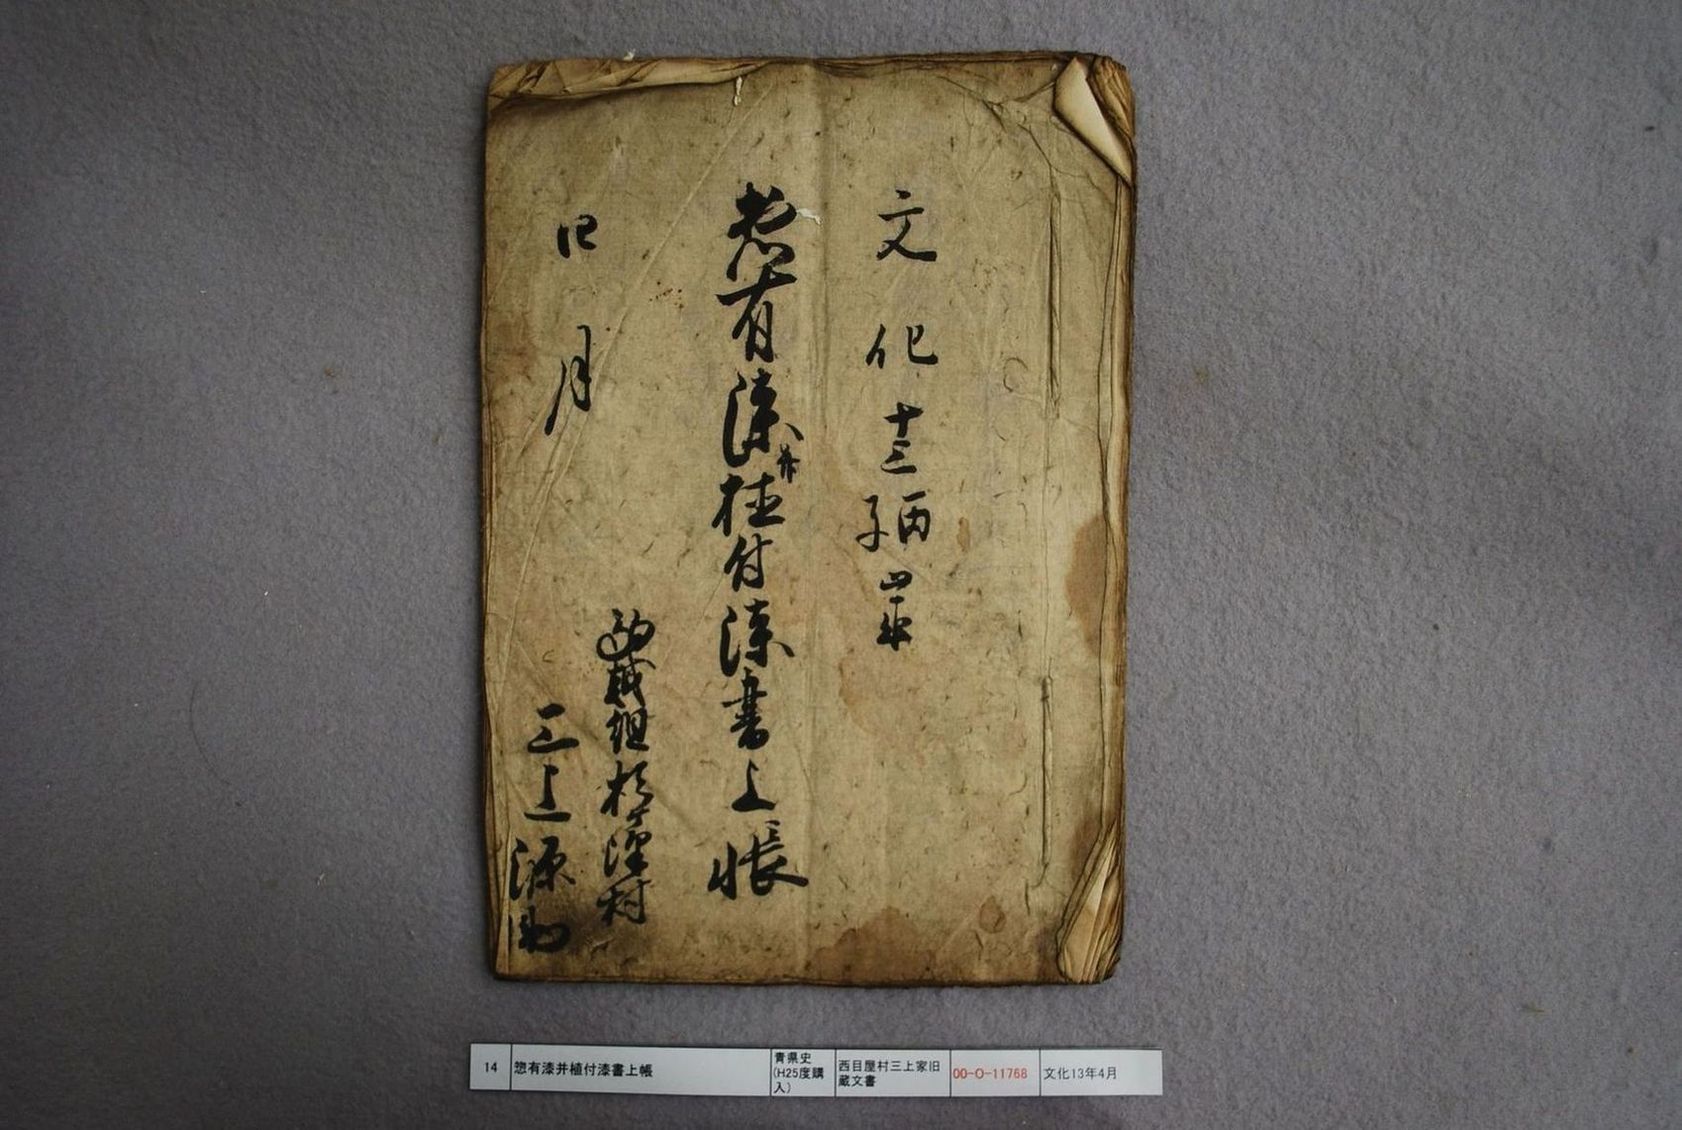 文化十三丙子年
惣有漆并植付漆書上帳
四月
駒越組杉ヶ沢村
三上源助
14
惣有漆并植付漆書上帳
青県史
(H25度購
入)
西目屋村三上家旧
蔵文書
00-O-11768
文化13年4月